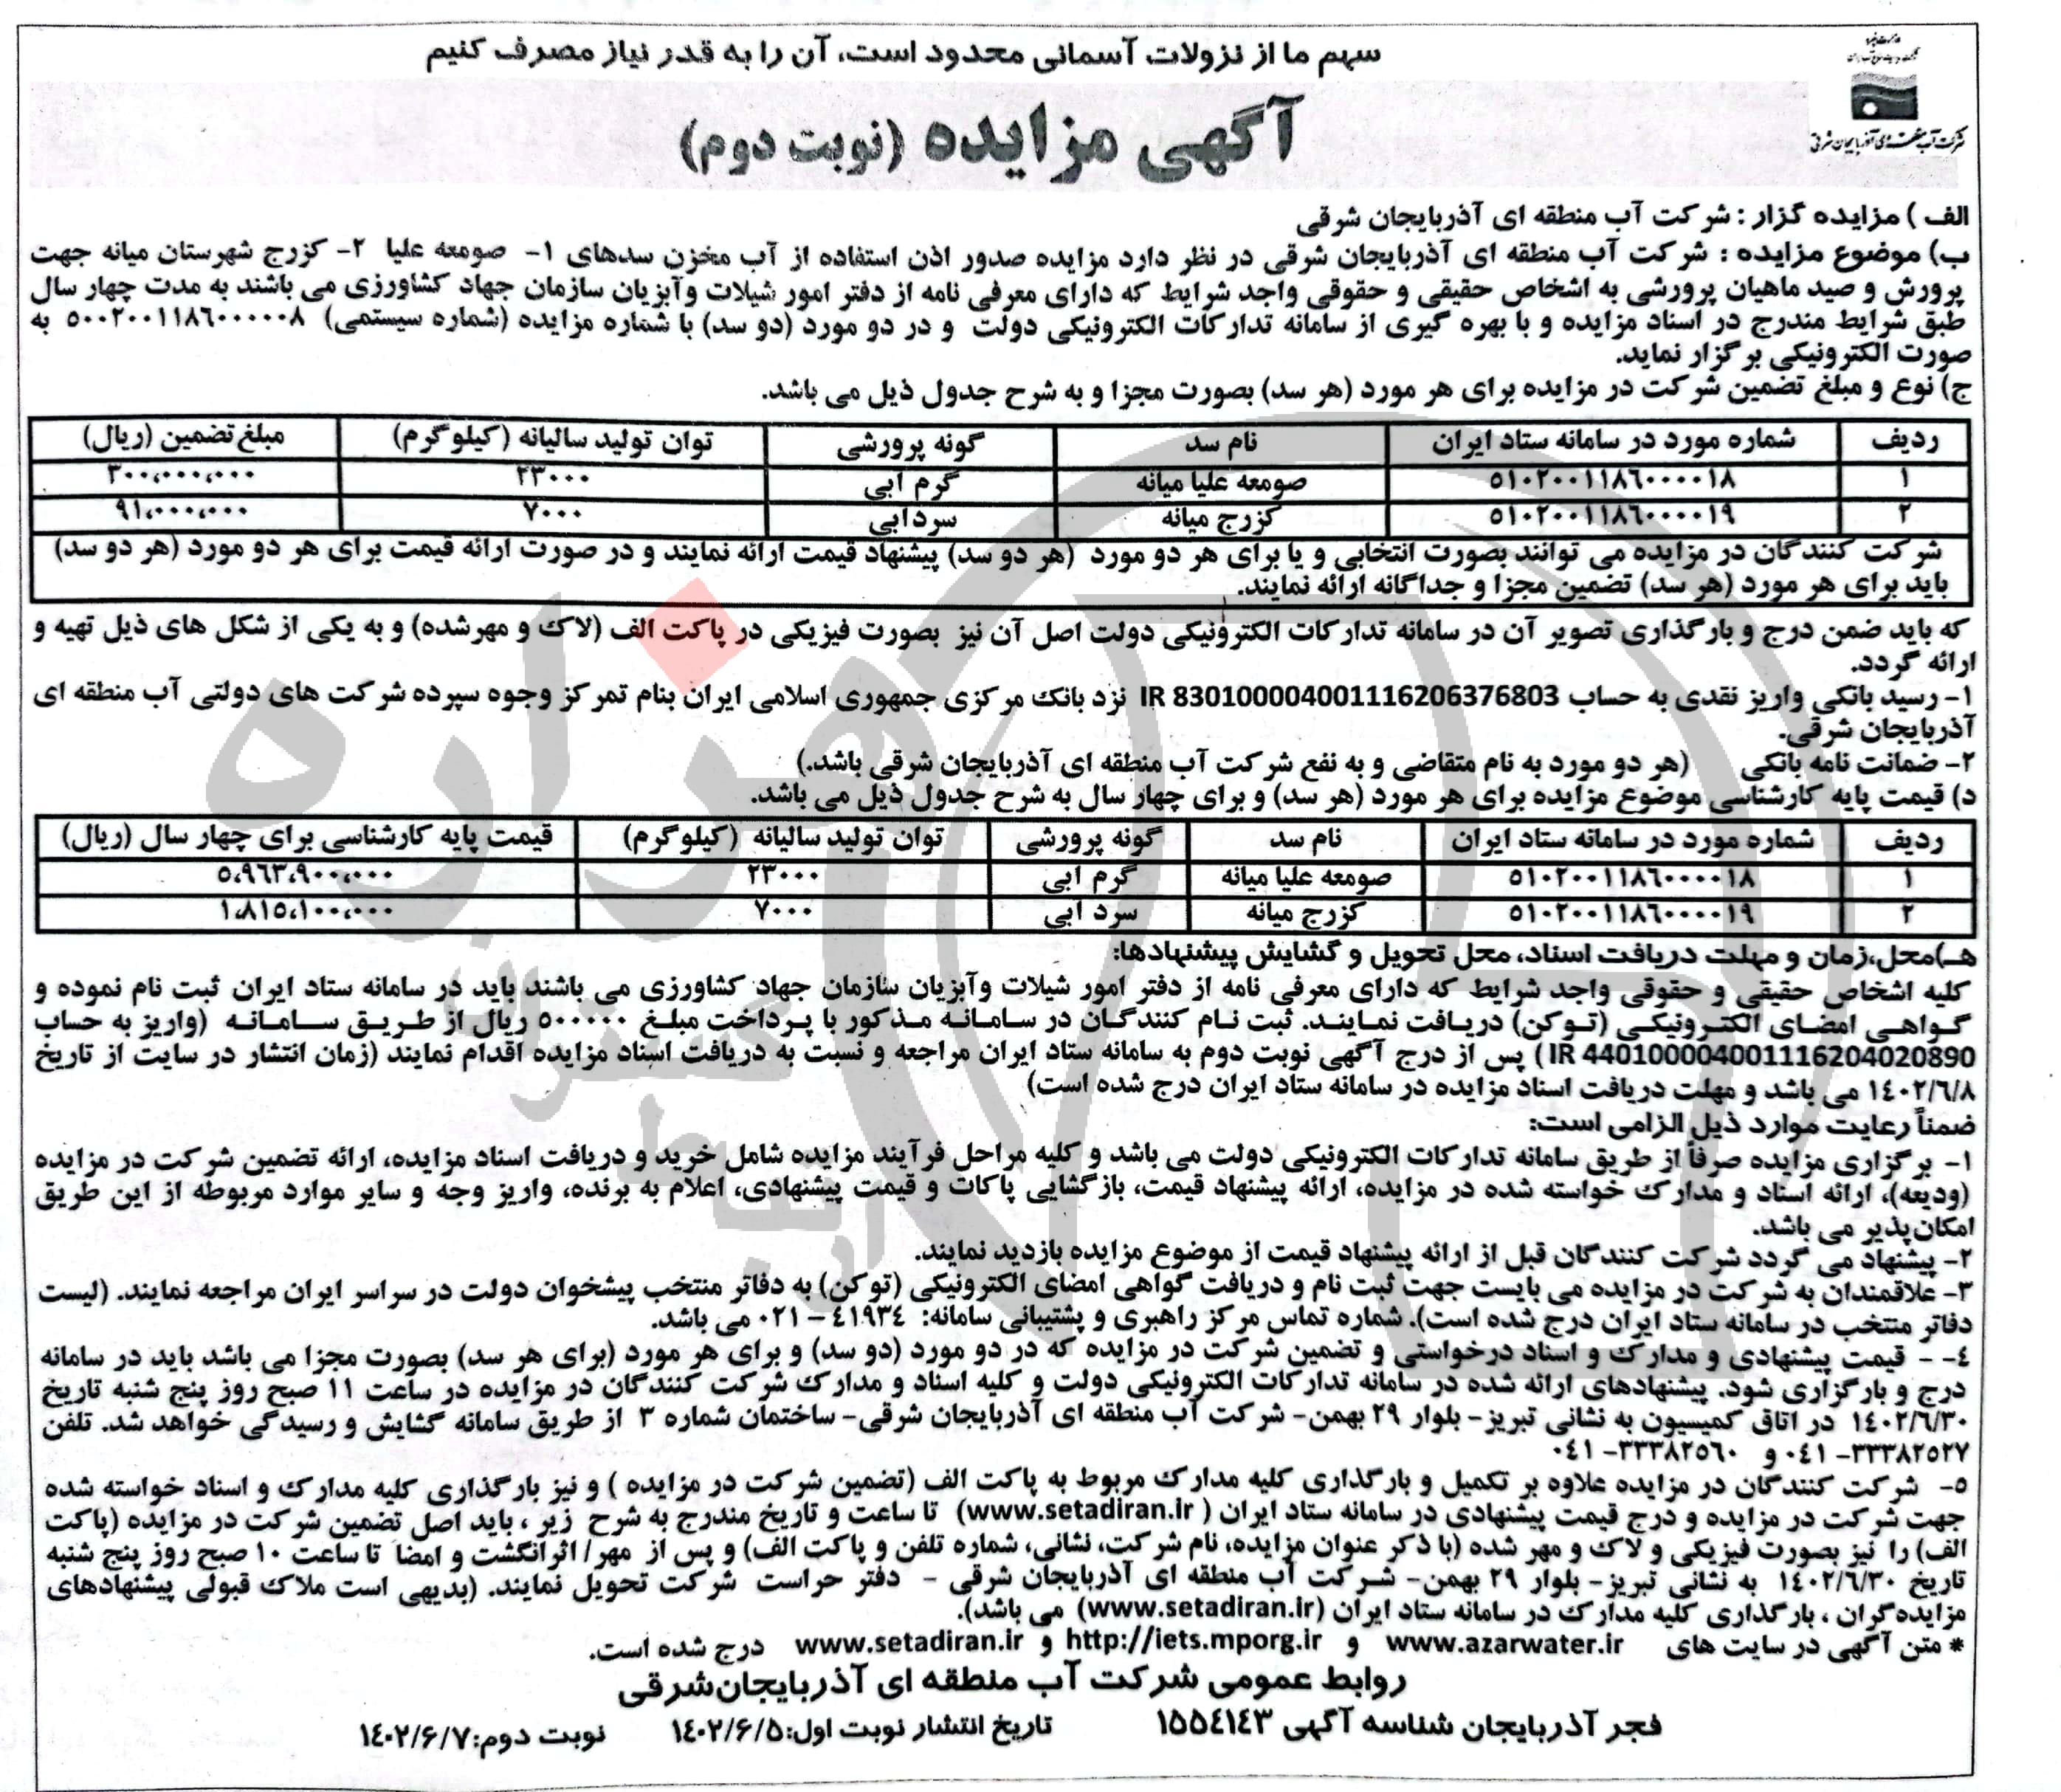 سهم ما از نزولات آسمانی محدود است، آن را به قدر نیاز مصرف کنیم
شرکت آب منطقه ای آذربایجان شرقی
آگهی مزایده (نوبت دوم)
الف) مزایده گزار : شرکت آب منطقه ای آذربایجان شرقی
ب) موضوع مزایده : شرکت آب منطقه ای آذربایجان شرقی در نظر دارد مزایده صدور اذن استفاده از آب مخزن سدهای ۱- صومعه علیا ۲- کزرج شهرستان میانه جهت
پرورش و صید ماهیان پرورشی به اشخاص حقیقی و حقوقی واجد شرایط که دارای معرفی نامه از دفتر امور شیلات وآبزیان سازمان جهاد کشاورزی می باشند به مدت چهار سال
طبق شرایط مندرج در اسناد مزایده و با بهره گیری از سامانه تدارکات الکترونیکی دولت و در دو مورد (دو سد) با شماره مزایده (شماره سیستمی) ۵۰۰۲۰۰۱۱۸۶۰۰۰۰۰۸ به
صورت الکترونیکی برگزار نماید.
ج) نوع و مبلغ تضمین شرکت در مزایده برای هر مورد (هر سد) بصورت مجزا و به شرح جدول ذیل می باشد.
ردیف شماره مورد در سامانه ستاد ایران نام سد گونه پرورشی توان تولید سالیانه (کیلوگرم) مبلغ تضمین (ریال)
۱ ۵۱۰۲۰۰۱۱۸۶۰۰۰۰۱۸ صومعه علیا میانه گرم ابی ۲۳۰۰۰ ۳۰۰،۰۰۰،۰۰۰
۲ ۵۱۰۲۰۰۱۱۸۶۰۰۰۰۱۹ کزرج میانه سردابی ۷۰۰۰ ۹۱،۰۰۰،۰۰۰
شرکت کنندگان در مزایده می توانند بصورت انتخابی و یا برای هر دو مورد (هر دو سد) پیشنهاد قیمت ارائه نمایند و در صورت ارائه قیمت برای هر دو مورد (هر دو سد)
باید برای هر مورد (هر سد) تضمین مجزا و جداگانه ارائه نمایند.
که باید ضمن درج و بارگذاری تصویر آن در سامانه تدارکات الکترونیکی دولت اصل آن نیز بصورت فیزیکی در پاکت الف (لاک و مهرشده) و به یکی از شکل های ذیل تهیه و
ارائه گردد.
۱- رسید بانکی واریز نقدی به حساب IR 830100004001116206376803 نزد بانک مرکزی جمهوری اسلامی ایران بنام تمرکز وجوه سپرده شرکت های دولتی آب منطقه ای
آذربایجان شرقی.
۲- ضمانت نامه بانکی (هر دو مورد به نام متقاضی و به نفع شرکت آب منطقه ای آذربایجان شرقی باشد.)
د) قیمت پایه کارشناسی موضوع مزایده برای هر مورد (هر سد) و برای چهار سال به شرح جدول ذیل می باشد.
ردیف شماره مورد در سامانه ستاد ایران نام سد گونه پرورشی توان تولید سالیانه (کیلوگرم) قیمت پایه کارشناسی برای چهار سال (ریال)
۱ ۵۱۰۲۰۰۱۱۸۶۰۰۰۰۱۸ صومعه علیا میانه گرم ابی ۲۳۰۰۰ ۵،۹۶۳،۹۰۰،۰۰۰
۲ ۵۱۰۲۰۰۱۱۸۶۰۰۰۰۱۹ کزرج میانه سرد ابی ۷۰۰۰ ۱،۸۱۵،۱۰۰،۰۰۰
هـ)محل،زمان و مهلت دریافت اسناد، محل تحویل و گشایش پیشنهادها:
کلیه اشخاص حقیقی و حقوقی واجد شرایط که دارای معرفی نامه از دفتر امور شیلات وآبزیان سازمان جهاد کشاورزی می باشند باید در سامانه ستاد ایران ثبت نام نموده و
گواهی امضای الکترونیکی (توکن) دریافت نمایند. ثبت نام کنندگان در سامانه مذکور با پرداخت مبلغ ۵۰۰۰۰۰ ریال از طریق سامانه (واریز به حساب
IR 440100004001116204020890) پس از درج آگهی نوبت دوم به سامانه ستاد ایران مراجعه و نسبت به دریافت اسناد مزایده اقدام نمایند (زمان انتشار در سایت از تاریخ
۱۴۰۲/۶/۸ می باشد و مهلت دریافت اسناد مزایده در سامانه ستاد ایران درج شده است)
ضمناً رعایت موارد ذیل الزامی است:
۱- برگزاری مزایده صرفاً از طریق سامانه تدارکات الکترونیکی دولت می باشد و کلیه مراحل فرآیند مزایده شامل خرید و دریافت اسناد مزایده، ارائه تضمین شرکت در مزایده
(ودیعه)، ارائه اسناد و مدارک خواسته شده در مزایده، ارائه پیشنهاد قیمت، بازگشایی پاکات و قیمت پیشنهادی، اعلام به برنده، واریز وجه و سایر موارد مربوطه از این طریق
امکان‌پذیر می باشد.
۲- پیشنهاد می گردد شرکت کنندگان قبل از ارائه پیشنهاد قیمت از موضوع مزایده بازدید نمایند.
۳- علاقمندان به شرکت در مزایده می بایست جهت ثبت نام و دریافت گواهی امضای الکترونیکی (توکن) به دفاتر منتخب پیشخوان دولت در سراسر ایران مراجعه نمایند. (لیست
دفاتر منتخب در سامانه ستاد ایران درج شده است). شماره تماس مرکز راهبری و پشتیبانی سامانه: ۴۱۹۳۴ – ۰۲۱ می باشد.
۴- - قیمت پیشنهادی و مدارک و اسناد درخواستی و تضمین شرکت در مزایده که در دو مورد (دو سد) و برای هر مورد (برای هر سد) بصورت مجزا می باشد باید در سامانه
درج و بارگزاری شود. پیشنهادهای ارائه شده در سامانه تدارکات الکترونیکی دولت و کلیه اسناد و مدارک شرکت کنندگان در مزایده در ساعت ۱۱ صبح روز پنج شنبه تاریخ
۱۴۰۲/۶/۳۰ در اتاق کمیسیون به نشانی تبریز- بلوار ۲۹ بهمن- شرکت آب منطقه ای آذربایجان شرقی- ساختمان شماره ۳ از طریق سامانه گشایش و رسیدگی خواهد شد. تلفن
۳۳۳۸۲۵۲۷- ۰۴۱ و ۳۳۳۸۲۵۶۰- ۰۴۱
۵- شرکت کنندگان در مزایده علاوه بر تکمیل و بارگذاری کلیه مدارک مربوط به پاکت الف (تضمین شرکت در مزایده ) و نیز بارگذاری کلیه مدارک و اسناد خواسته شده
جهت شرکت در مزایده و درج قیمت پیشنهادی در سامانه ستاد ایران ( www.setadiran.ir) تا ساعت و تاریخ مندرج به شرح زیر ، باید اصل تضمین شرکت در مزایده (پاکت
الف) را نیز بصورت فیزیکی و لاک و مهر شده (با ذکر عنوان مزایده، نام شرکت، نشانی، شماره تلفن و پاکت الف) و پس از مهر/ اثرانگشت و امضا تا ساعت ۱۰ صبح روز پنج شنبه
تاریخ ۱۴۰۲/۶/۳۰ به نشانی تبریز- بلوار ۲۹ بهمن- شرکت آب منطقه ای آذربایجان شرقی - دفتر حراست شرکت تحویل نمایند. (بدیهی است ملاک قبولی پیشنهادهای
مزایده‌گران ، بارگذاری کلیه مدارک در سامانه ستاد ایران (www.setadiran.ir) می باشد).
* متن آگهی در سایت های www.azarwater.ir و http://iets.mporg.ir و www.setadiran.ir درج شده است.
روابط عمومی شرکت آب منطقه ای آذربایجان‌شرقی
فجر آذربایجان شناسه آگهی ۱۵۵۴۱۴۳ تاریخ انتشار نوبت اول:۱۴۰۲/۶/۵ نوبت دوم:۱۴۰۲/۶/۷